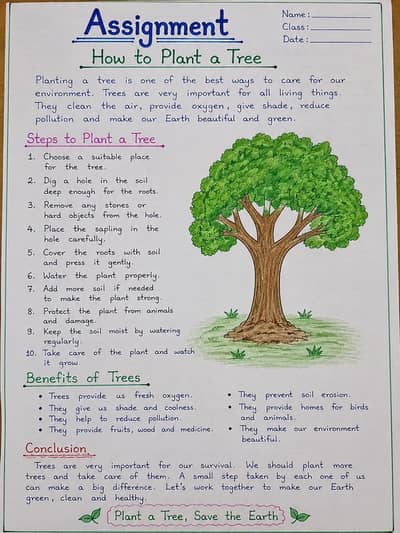 Assignment
Name:
Class:
Date:
How to Plant a Tree
Planting a tree is one of the best ways to care for our
environment. Trees are very important for all living things.
They clean the air, provide oxygen, give shade, reduce
pollution and make our Earth beautiful and green.
Steps to Plant a Tree
1. Choose a suitable place
for the tree.
2. Dig a hole in the soil
deep enough for the roots.
3. Remove any stones or
hard objects from the hole.
4. Place the sapling in the
hole carefully.
5. Cover the roots with soil
and press it gently.
6. Water the plant properly.
7. Add more soil if needed
to make the plant strong.
8. Protect the plant from animals
and damage.
9. Keep the soil moist by watering
regularly.
10. Take care of the plant and watch
it grow.
Benefits of Trees
• Trees provide us fresh oxygen.
• They give us shade and coolness.
• They help to reduce pollution.
• They provide fruits, wood and medicine.
• They prevent soil erosion.
• They provide homes for birds
and animals.
• They make our environment
beautiful.
Conclusion
Trees are very important for our survival. We should plant more
trees and take care of them. A small step taken by each one of us
can make a big difference. Let's work together to make our Earth
green, clean and healthy.
Plant a Tree, Save the Earth